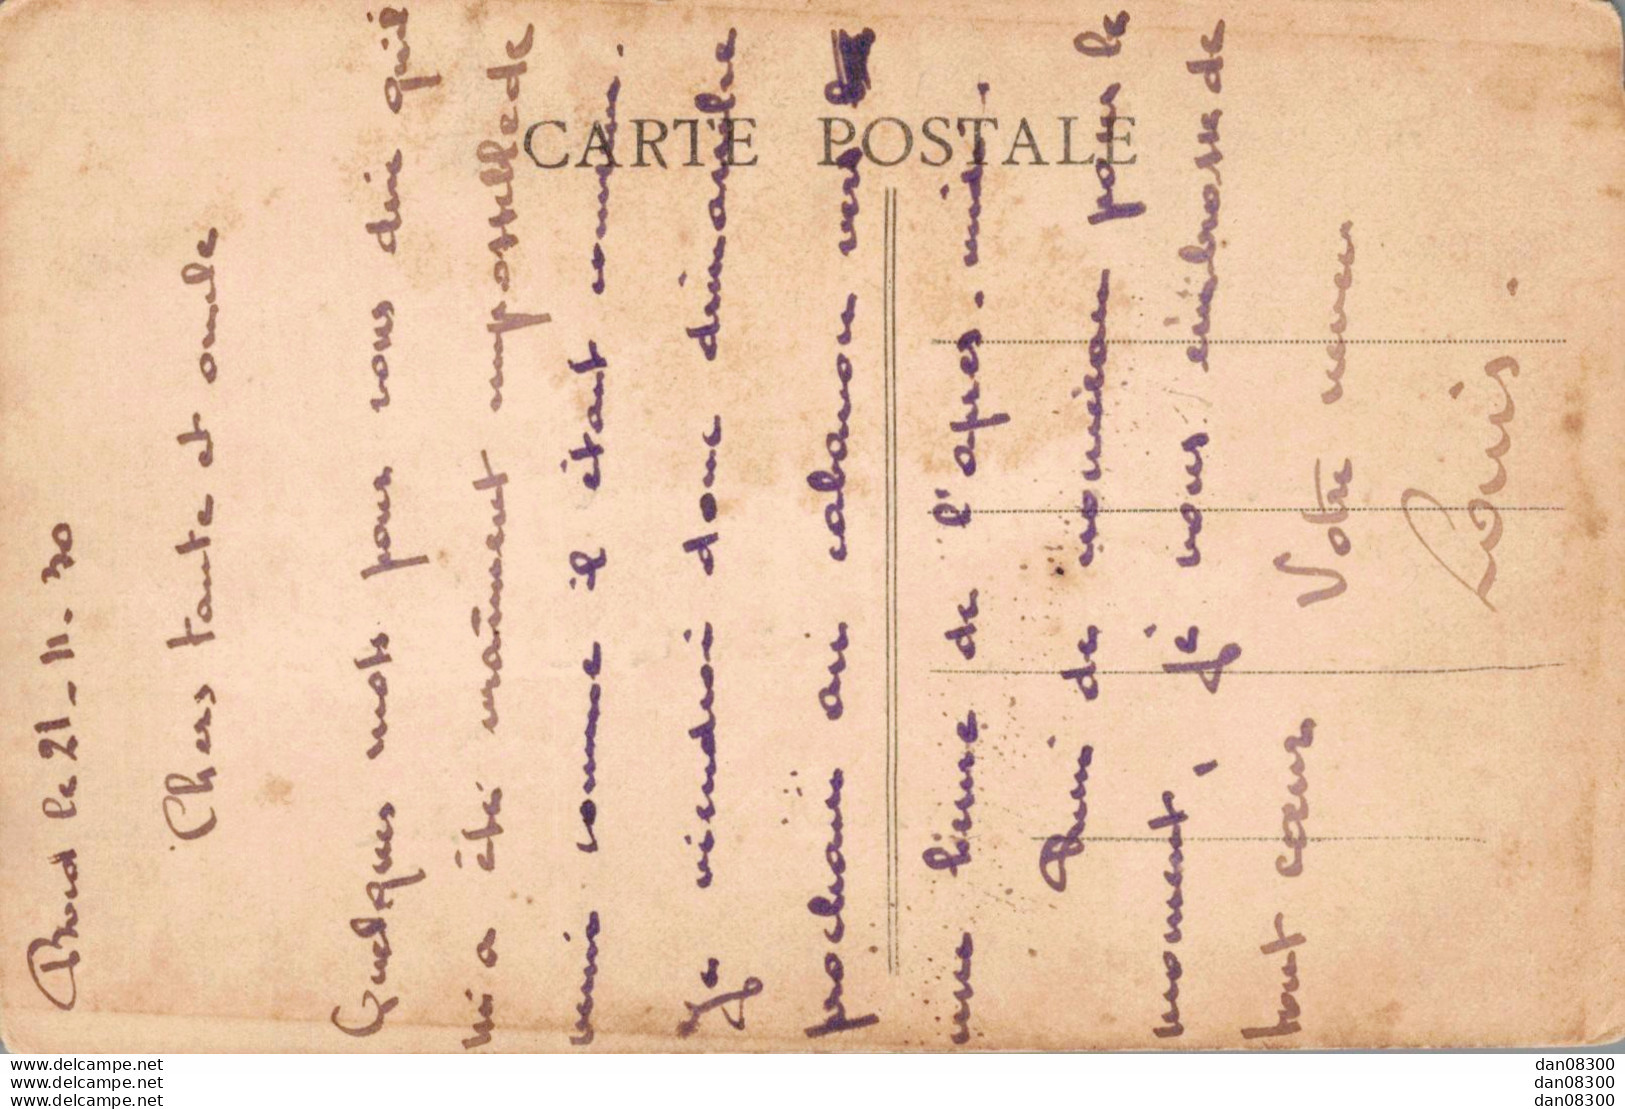 Brud le 21-11-30
Chers tante et oncle
Quelques mots pour vous dire qu'il
m'a été vraiment impossible de
venir comme il était convenu.
Je viendrai donc dimanche
prochain au cabanon vers
une heure de l'après-midi.
Rien de nouveau pour le
moment, je vous embrasse de
tout cœur Votre neveu
Louis.
CARTE POSTALE
www.delcampe.net dan08300
www.delcampe.net dan08300
www.delcampe.net dan08300